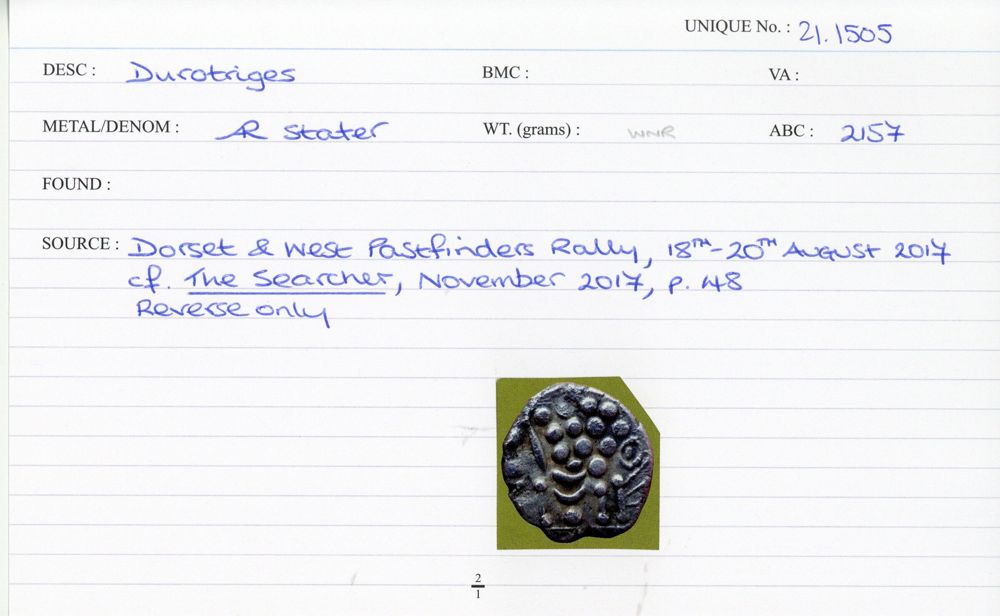 UNIQUE No. : 21.1505
DESC : Durotriges BMC : VA :
METAL/DENOM : AR Stater WT. (grams) : WNR ABC : 2157
FOUND :
SOURCE : Dorset & West Pastfinders Rally, 18TH-20TH August 2017
cf. The Searcher, November 2017, p. 48
Reverse only
2
1